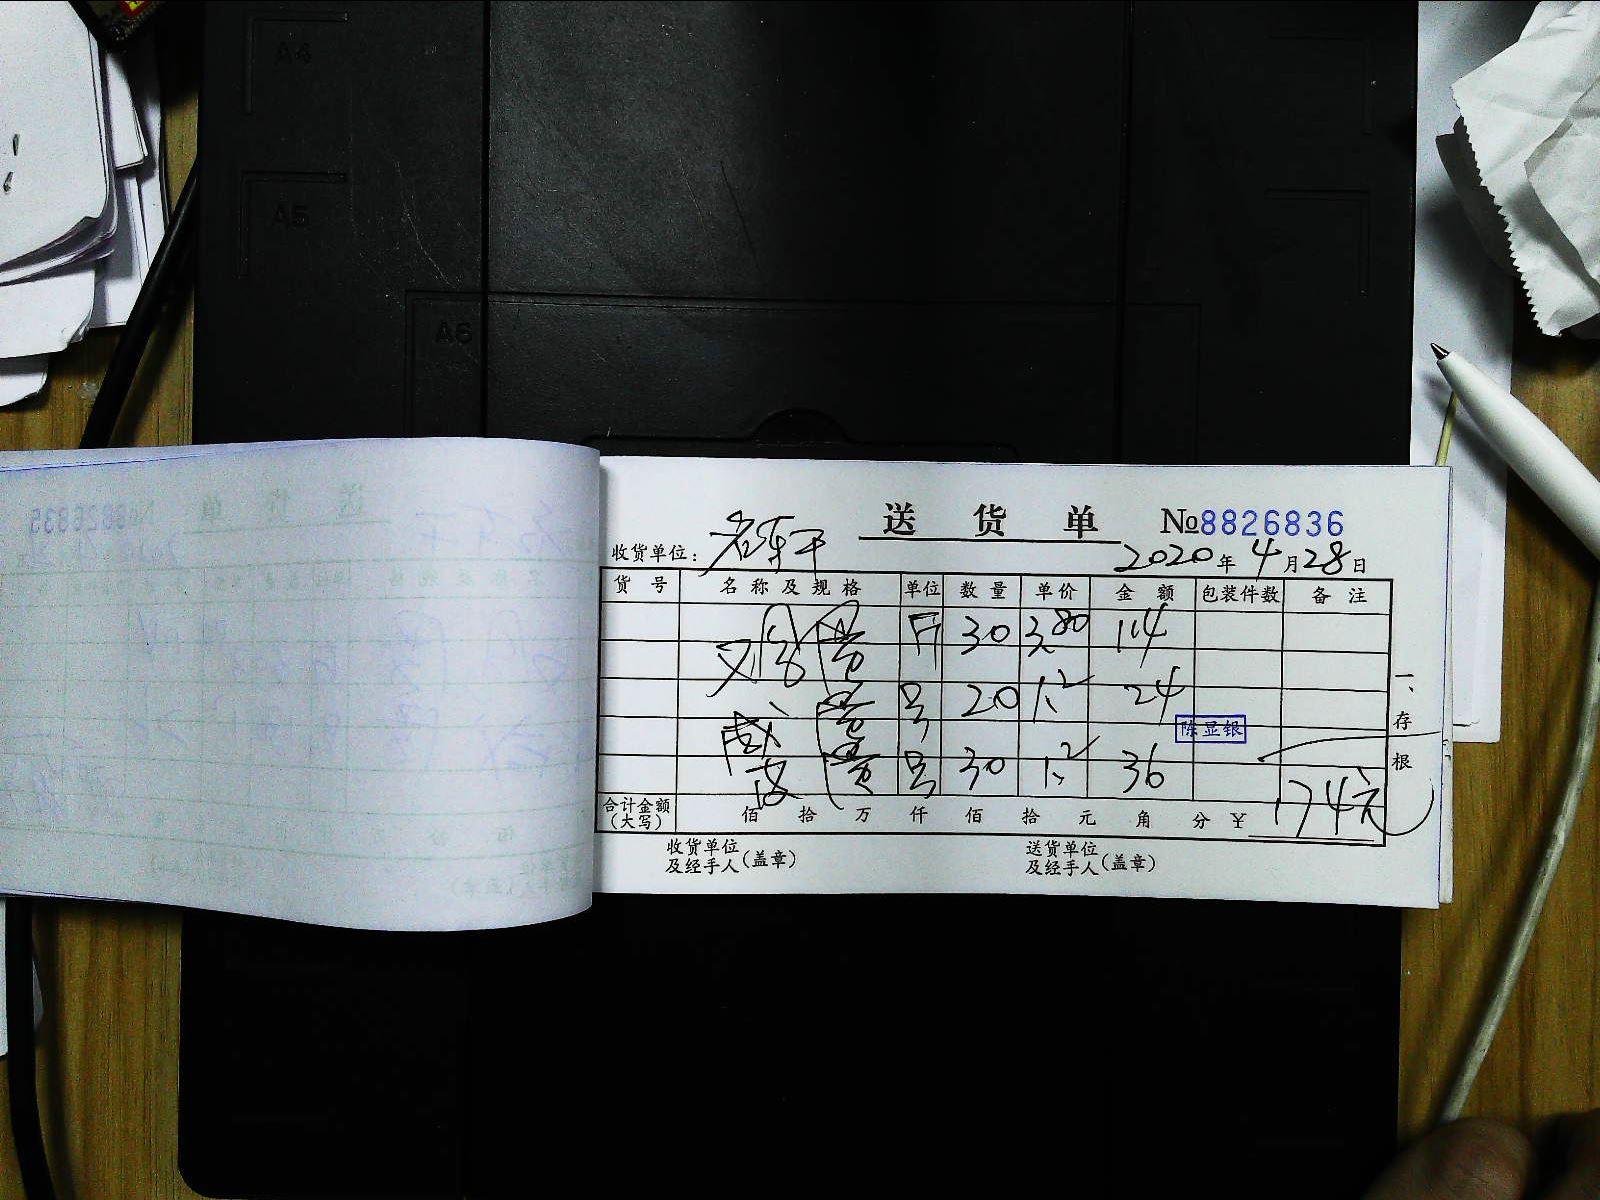 A4
A5
A6
送货单 №8826836
收货单位：
2020年4月28日
货号 名称及规格 单位 数量 单价 金额 包装件数 备注
斤 30 3.80 114
鸡蛋
咸蛋 号 20 1.2 24
陈显银
皮蛋 号 30 1.2 36
一、存根
合计金额（大写） 佰 拾 万 仟 佰 拾 元 角 分 ¥ 174元
收货单位及经手人（盖章）
送货单位及经手人（盖章）